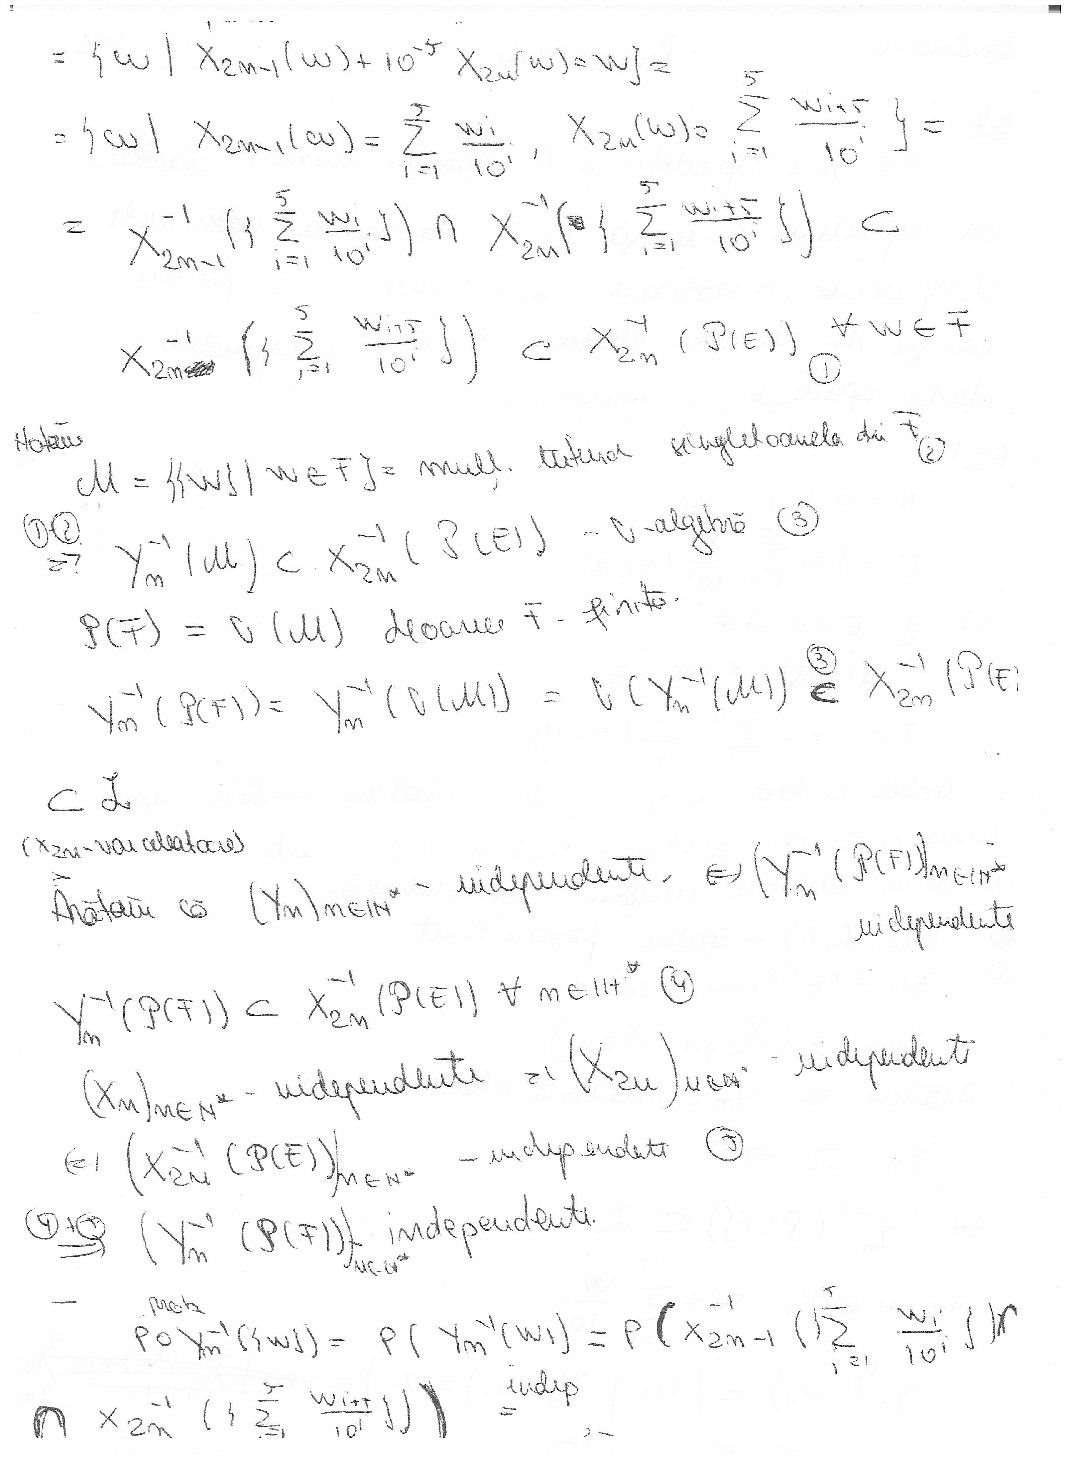 = {ω | X_{2n-1}(ω) + 10^{-5} X_{2n}(ω) = w} =
= {ω | X_{2n-1}(ω) = \sum_{i=1}^{5} \frac{w_i}{10^i}, X_{2n}(ω) = \sum_{i=1}^{5} \frac{w_{i+5}}{10^i} } =
= X_{2n-1}^{-1} ({ \sum_{i=1}^{5} \frac{w_i}{10^i} }) ∩ X_{2n}^{-1} ({ \sum_{i=1}^{5} \frac{w_{i+5}}{10^i} }) ⊂
X_{2n}^{-1} ({ \sum_{i=1}^{5} \frac{w_{i+5}}{10^i} }) ⊂ X_{2n}^{-1} (P(E)) ∀ w ∈ F ①
Notăm
M = {{w} | w ∈ F} = mulț. tuturor singletoanelor din F ②
①② ⇒ Y_n^{-1} (M) ⊂ X_{2n}^{-1} (P(E)) - σ-algebră ③
P(F) = σ(M) deoarece F - finită.
Y_n^{-1} (P(F)) = Y_n^{-1} (σ(M)) = σ(Y_n^{-1} (M)) ③ ⊂ X_{2n}^{-1} (P(E)
⊂ L
(X_{2n} - var aleatoare)
Arătăm că (Y_n)_{n∈ℕ*} - independente. ⇔ (Y_n^{-1} (P(F)))_{n∈ℕ*}
independente
Y_n^{-1} (P(F)) ⊂ X_{2n}^{-1} (P(E)) ∀ n ∈ ℕ* ④
(X_n)_{n∈ℕ*} - independente ⇒ (X_{2n})_{n∈ℕ*} - independente
⇔ (X_{2n}^{-1} (P(E)))_{n∈ℕ*} - independente ⑤
④+⑤ ⇒ (Y_n^{-1} (P(F)))_{n∈ℕ*} independente.
P∘Y_n^{-1} ({w}) = P(Y_n^{-1} (w)) = P(X_{2n-1}^{-1} ({ \sum_{i=1}^{5} \frac{w_i}{10^i} }) ∩
∩ X_{2n}^{-1} ({ \sum_{i=1}^{5} \frac{w_{i+5}}{10^i} })) indep =